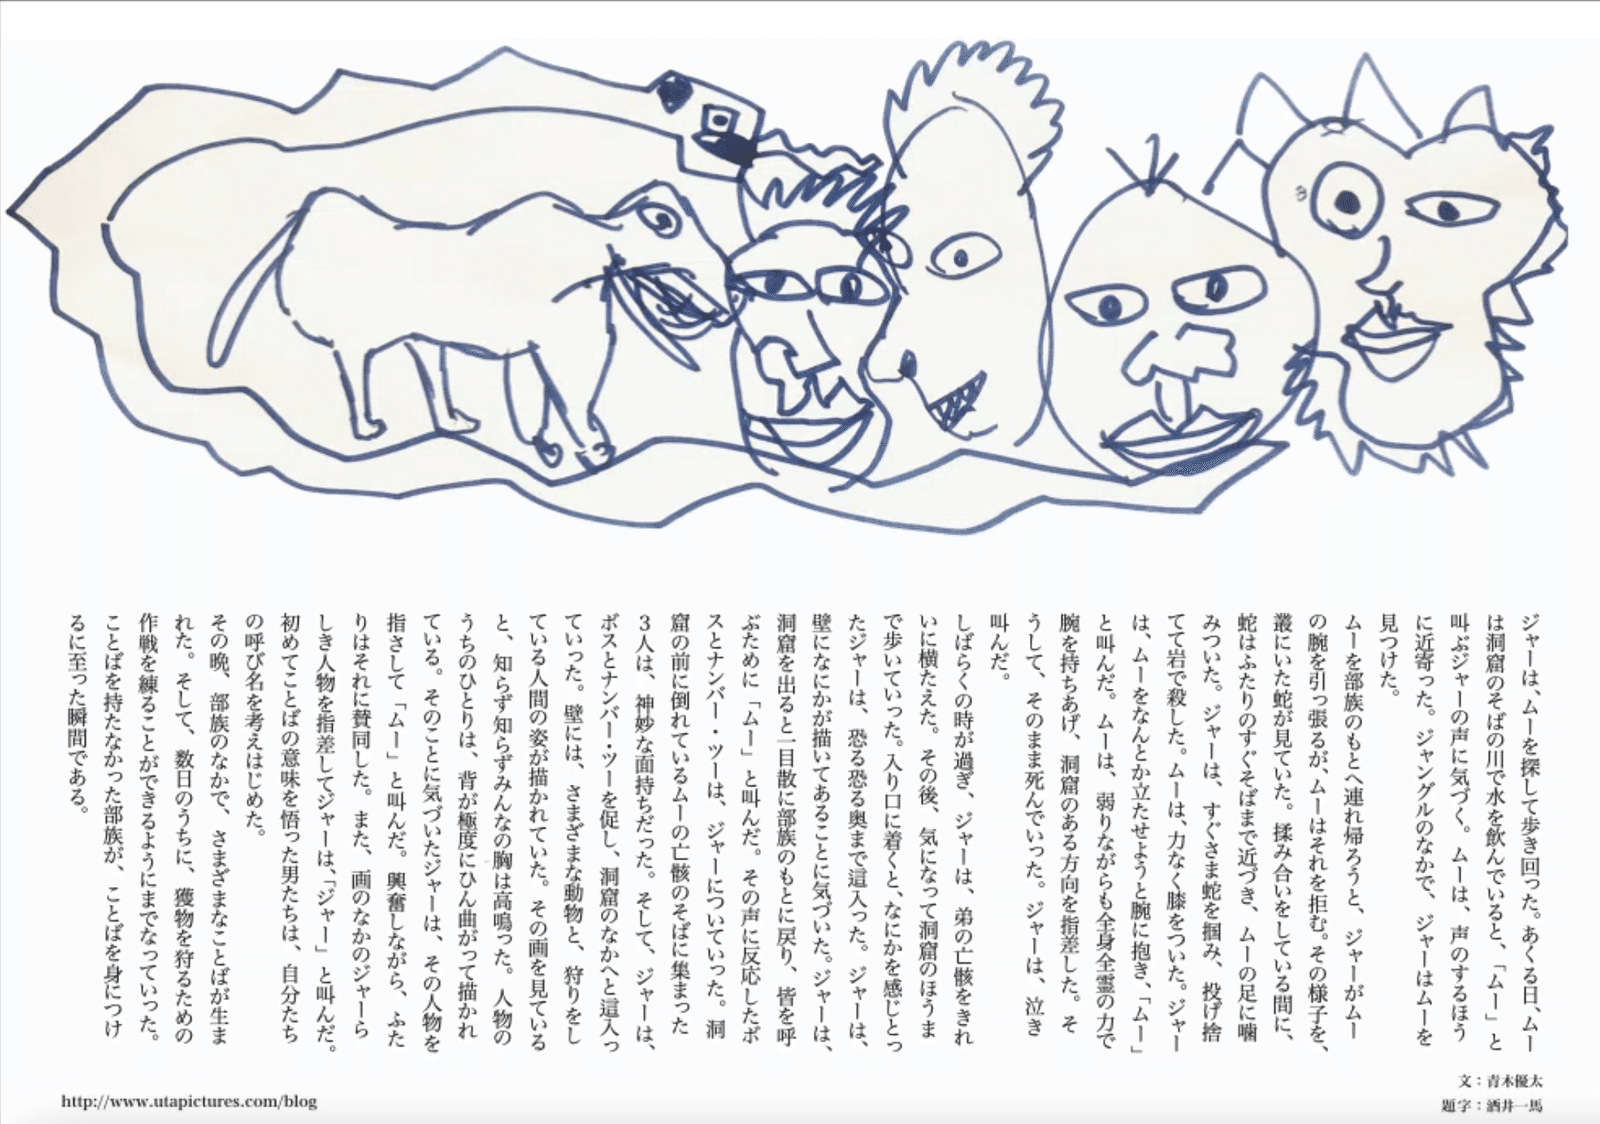 ジャーは、ムーを探して歩き回った。あくる日、ムー
は洞窟のそばの川で水を飲んでいると、「ムー」と
叫ぶジャーの声に気づく。ムーは、声のするほう
に近寄った。ジャングルのなかで、ジャーはムーを
見つけた。
ムーを部族のもとへ連れ帰ろうと、ジャーがムー
の腕を引っ張るが、ムーはそれを拒む。その様子を、
叢にいた蛇が見ていた。揉み合いをしている間に、
蛇はふたりのすぐそばまで近づき、ムーの足に噛
みついた。ジャーは、すぐさま蛇を掴み、投げ捨
てて岩で殺した。ムーは、力なく膝をついた。ジャー
は、ムーをなんとか立たせようと腕に抱き、「ムー」
と叫んだ。ムーは、弱りながらも全身全霊の力で
腕を持ちあげ、洞窟のある方向を指差した。そ
うして、そのまま死んでいった。ジャーは、泣き
叫んだ。
しばらくの時が過ぎ、ジャーは、弟の亡骸をきれ
いに横たえた。その後、気になって洞窟のほうま
で歩いていった。入り口に着くと、なにかを感じとっ
たジャーは、恐る恐る奥まで這入った。ジャーは、
壁になにかが描いてあることに気づいた。ジャーは、
洞窟を出ると一目散に部族のもとに戻り、皆を呼
ぶために「ムー」と叫んだ。その声に反応したボ
スとナンバー・ツーは、ジャーについていった。洞
窟の前に倒れているムーの亡骸のそばに集まった
3人は、神妙な面持ちだった。そして、ジャーは、
ボスとナンバー・ツーを促し、洞窟のなかへと這入っ
ていった。壁には、さまざまな動物と、狩りをし
ている人間の姿が描かれていた。その画を見ている
と、知らず知らずみんなの胸は高鳴った。人物の
うちのひとりは、背が極度にひん曲がって描かれ
ている。そのことに気づいたジャーは、その人物を
指さして「ムー」と叫んだ。興奮しながら、ふた
りはそれに賛同した。また、画のなかのジャーら
しき人物を指差してジャーは、「ジャー」と叫んだ。
初めてことばの意味を悟った男たちは、自分たち
の呼び名を考えはじめた。
その晩、部族のなかで、さまざまなことばが生ま
れた。そして、数日のうちに、獲物を狩るための
作戦を練ることができるようにまでなっていった。
ことばを持たなかった部族が、ことばを身につけ
るに至った瞬間である。
文：青木優太
題字：酒井一馬
http://www.utapictures.com/blog